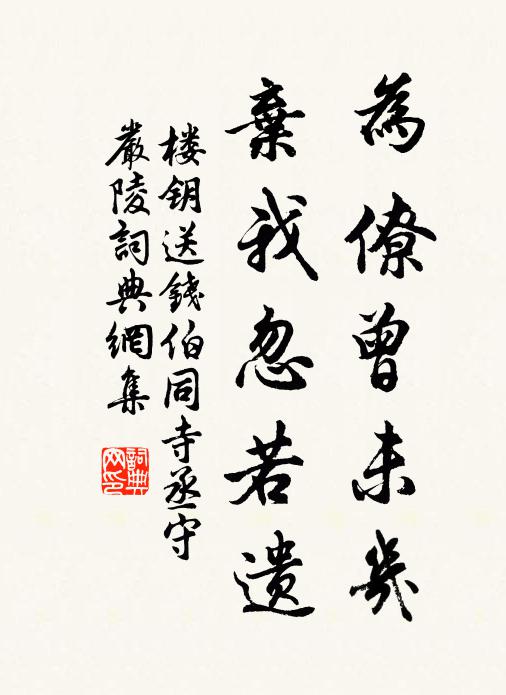 為僚曾未幾
棄我忽若遺
楼钥送錢伯同寺丞守
嚴陵詞典網集
詞典
网印